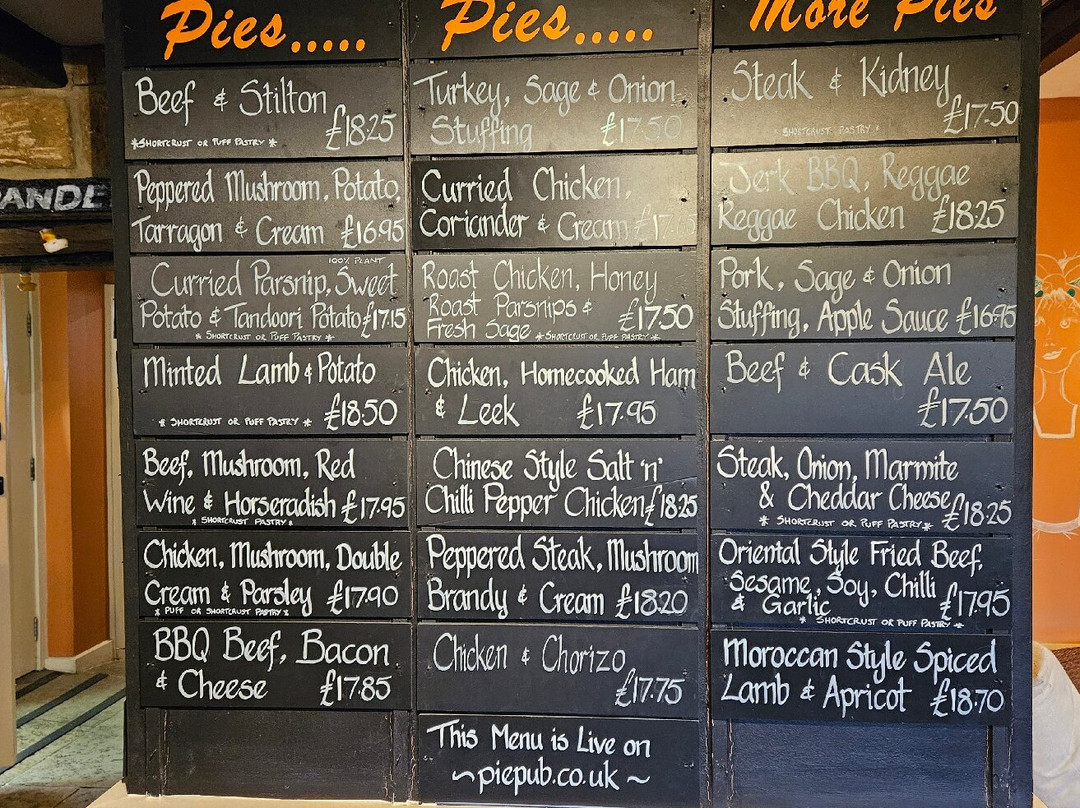 Pies.....
Beef & Stilton
£18.25
*SHORTCRUST OR PUFF PASTRY*
Peppered Mushroom, Potato,
Tarragon & Cream £16.95
100% PLANT
Curried Parsnip, Sweet
Potato & Tandoori Potato £17.15
* SHORTCRUST OR PUFF PASTRY *
Minted Lamb & Potato
£18.50
* SHORTCRUST OR PUFF PASTRY *
Beef, Mushroom, Red
Wine & Horseradish £17.95
* SHORTCRUST PASTRY *
Chicken, Mushroom, Double
Cream & Parsley £17.90
* PUFF OR SHORTCRUST PASTRY *
BBQ Beef, Bacon
& Cheese £17.85
Pies.....
Turkey, Sage & Onion
Stuffing £17.50
Curried Chicken,
Coriander & Cream
Roast Chicken, Honey
Roast Parsnips &
Fresh Sage £17.50
*SHORTCRUST OR PUFF PASTRY*
Chicken, Homecooked Ham
& Leek £17.95
Chinese Style Salt 'n'
Chilli Pepper Chicken £18.25
Peppered Steak, Mushroom
Brandy & Cream £18.20
Chicken & Chorizo
£17.75
This Menu is Live on
~piepub.co.uk~
More Pies
Steak & Kidney
£17.50
* SHORTCRUST PASTRY *
Jerk BBQ, Reggae
Reggae Chicken £18.25
Pork, Sage & Onion
Stuffing, Apple Sauce £16.95
Beef & Cask Ale
£17.50
Steak, Onion, Marmite
& Cheddar Cheese £18.25
* SHORTCRUST OR PUFF PASTRY *
Oriental Style Fried Beef,
Sesame, Soy, Chilli
& Garlic £17.95
* SHORTCRUST OR PUFF PASTRY *
Moroccan Style Spiced
Lamb & Apricot £18.70